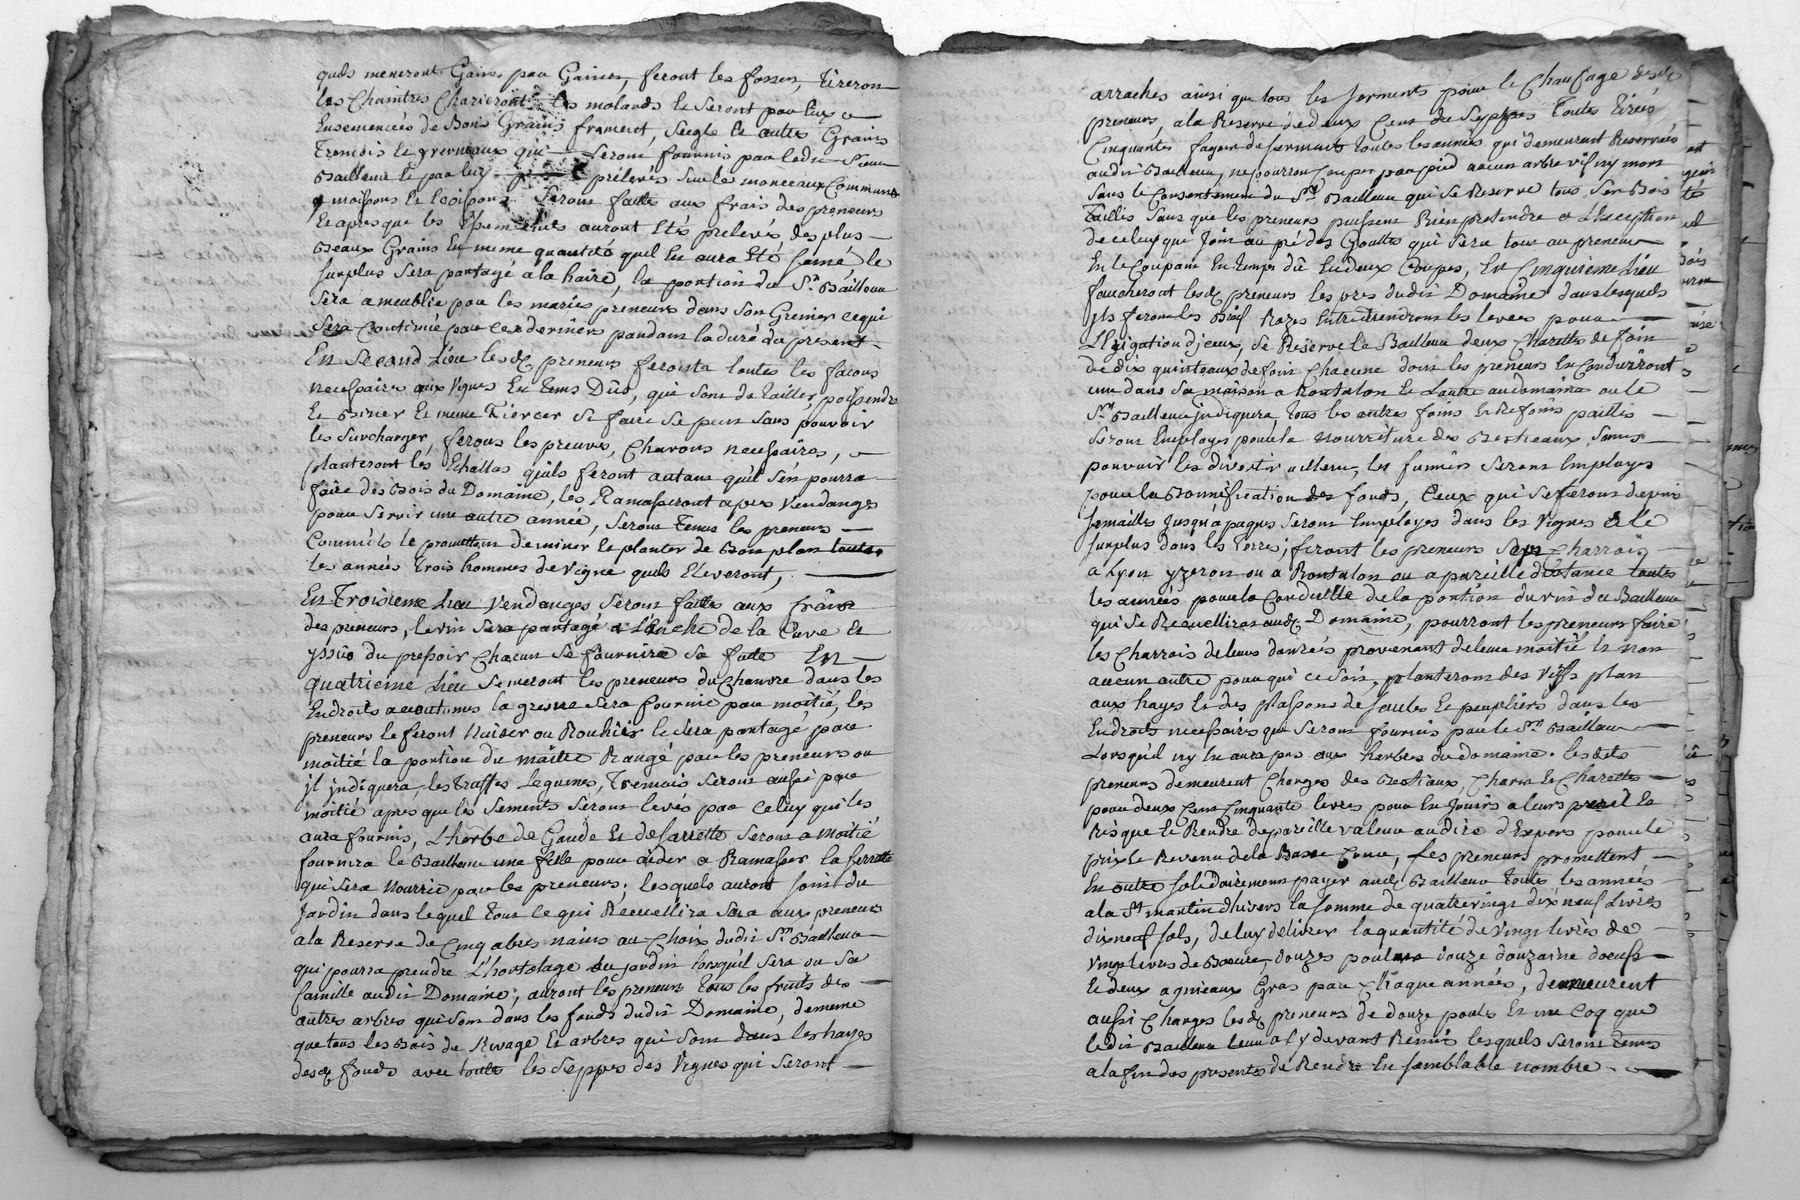 quils meneront Gaines par Gaines, feront les fosses, tireron
les Chaintres Charieront les molards le Seront par eux
Ensemencés de Bons Grains froment, Seigle et autres Grains
Tremois et qui Seront fournis par ledit Sieur
Bailleur et par luy prélevés Sur le monceaux Commune
moissons et Seront faitte aux frais des preneurs
Et apres que les Semences auront Etés prelevés des plus
Beaux Grains En meme quantité quil En aura Eté Semé le
Surplus Sera partagé a la haire, la portion du Sr. Bailleur
Sera ameublie par les mariés preneurs dans Son Grenier ce qui
Sera Continué par ces derniers pandant la duré du présent
En Second Lieu les d preneurs feronta toutes les facons
necessaire aux Vignes En tems Dûs, qui Sont de tailler,
Et Biner Et meme Tiercer Si faire Se peut Sans pouvoir
les Surcharger, ferons les preuves, Charons necessaires,
planteront les Echallas quils feront autant quil S'en pourra
faire des Bois du Domaine, les Ramasseront apres Vendanges
pour Servir une autre année, Seront tenus les preneurs
Comm'ils le promettent de miner Et planter de Bon plan toutes
les années trois hommes de Vigne quils Eleveront,
En Troisieme Lieu Vendanges Seront faittes aux frais
des preneurs, le vin Sera partagé a L'Anche de la Cuve Et
yssüe du pressoir Chacun Se fournira Sa futte En
quatrieme Lieu Semeront les preneurs du Chanvre dans les
Endroits accoutumes la greine Sera fournie par moitié, les
preneurs le feront Naiser ou Rouhir le Sera partagé par
moitié la portion du maitre Rangé par les preneurs ou
jl jndiquera, les truffes Legumes, Tremois Seront aussi par
moitié apres que les Sements Seront levés par Celuy qui les
aura fournis, L'herbe de Gaude Et de Sarrette Seront a Moitié
fournira le Bailleur une fille pour aider a Ramasser la Serrette
qui Sera nourrie par les preneurs, lesquels auront soin du
Jardin dans lequel tout ce qui Recueillira Sera aux preneurs
a la Reserve de Cinq abres nains au Choix dudit Sr. Bailleur
qui pourra prendre L'hortolage du jardin lorsquil Sera ou Sa
famille audit Domaine, auront les preneurs tous les fruits des
autres arbres qui Sont dans les fonds dudit Domaine, de meme
que tous les Bois de Rivage Et arbres qui Sont dans les hayes
desd fonds avec toute les Seppes des Vignes qui Seront
arrachés ainsi que tous les Serments pour le Chaufage desd
preneurs, a la Reserve de deux Cent de Seppes Toutes tirées,
Cinquantes fagots de Serments toutes les années qui demeurent Reservées
audit Bailleur, ne pourront Couper par pied aucun arbre vif ny mort
Sans le Consentement du Sr. Bailleur qui Se Reserve tous Ses Bois
Taillis Sans que les preneurs puissent Rien pretendre a L'Exception
de celuy que Join au pié des Gouttes qui Sera tous au preneur
En le Coupant En temps dû En deux Coupes, En Cinquieme Lieu
faucheront lesd preneurs les pres dudit Domaine dans lesquels
jls feront les Biefs Razes Entretiendrons les levées pour
L'Egigation d'jceux, Se Reserve le Bailleur deux Charettes de foin
de dix quinteaux de foin Chacune dont les preneurs En Conduiront
une dans Sa maison a Rontalon Et L'autre au domaine ou le
Sr. Bailleur jndiquera, tous les autres foins Et Refoins pailles
Seront Employés pour la nourriture des Bestieaux, Sans
pouvoir les divertir ailleur, les fumiers Seront Employes
pour la Bonnification des fonds, Ceux qui Se feront depuis
Semailles jusqu'a paques Seront Employes dans les Vignes Et le
Surplus dans les Terres; feront les preneurs Sept Charrois
a Lyon yzeron ou a Rontalon ou a pareille distance toutes
les années pour la Conduitte de la portion du vin du Bailleur
qui Se Recueilliras aud Domaine, pourront les preneurs faire
les Charrois de leurs danrées provenant de leur moitié Et non
aucun autre pour qui ce Soit, planterons des Vifs plan
aux hayes Et des plassons de Saules Et peupliers dans les
Endroits necessaires qui Seront fournis par le Sr. Bailleur
Lorsqu'il n'y En aura pas aux harbres du domaine. lesdits
preneurs demeurent Charges des Bestiaux, Charue Et Charette
pour deux Cens Cinquante livres pour En jouirs a leurs peril Et
Risque Et Rendre de pareille valeur au dire d'Expers pour le
prix Et Revenu de la Basse Cour, Les preneurs promettent
En outre Solidairement payer aud Bailleur toutes les années
a la St. martin d'hivers la Somme de quatrevingt dix neuf Livres
dix neuf Sols, de luy délivrer la quantité de Vingt livres de
Vingt livres de Beurre, douzes poulets douze douzaine d'oeufs
Et deux agnieaux Gras par Chaque années, demeurent
aussi Charges lesd preneurs de douze poules Et un Coq que
ledit Bailleur leur a Cy devant Remis lesquels Seront tenus
a la fin des presentes de Rendre En Semblable nombre